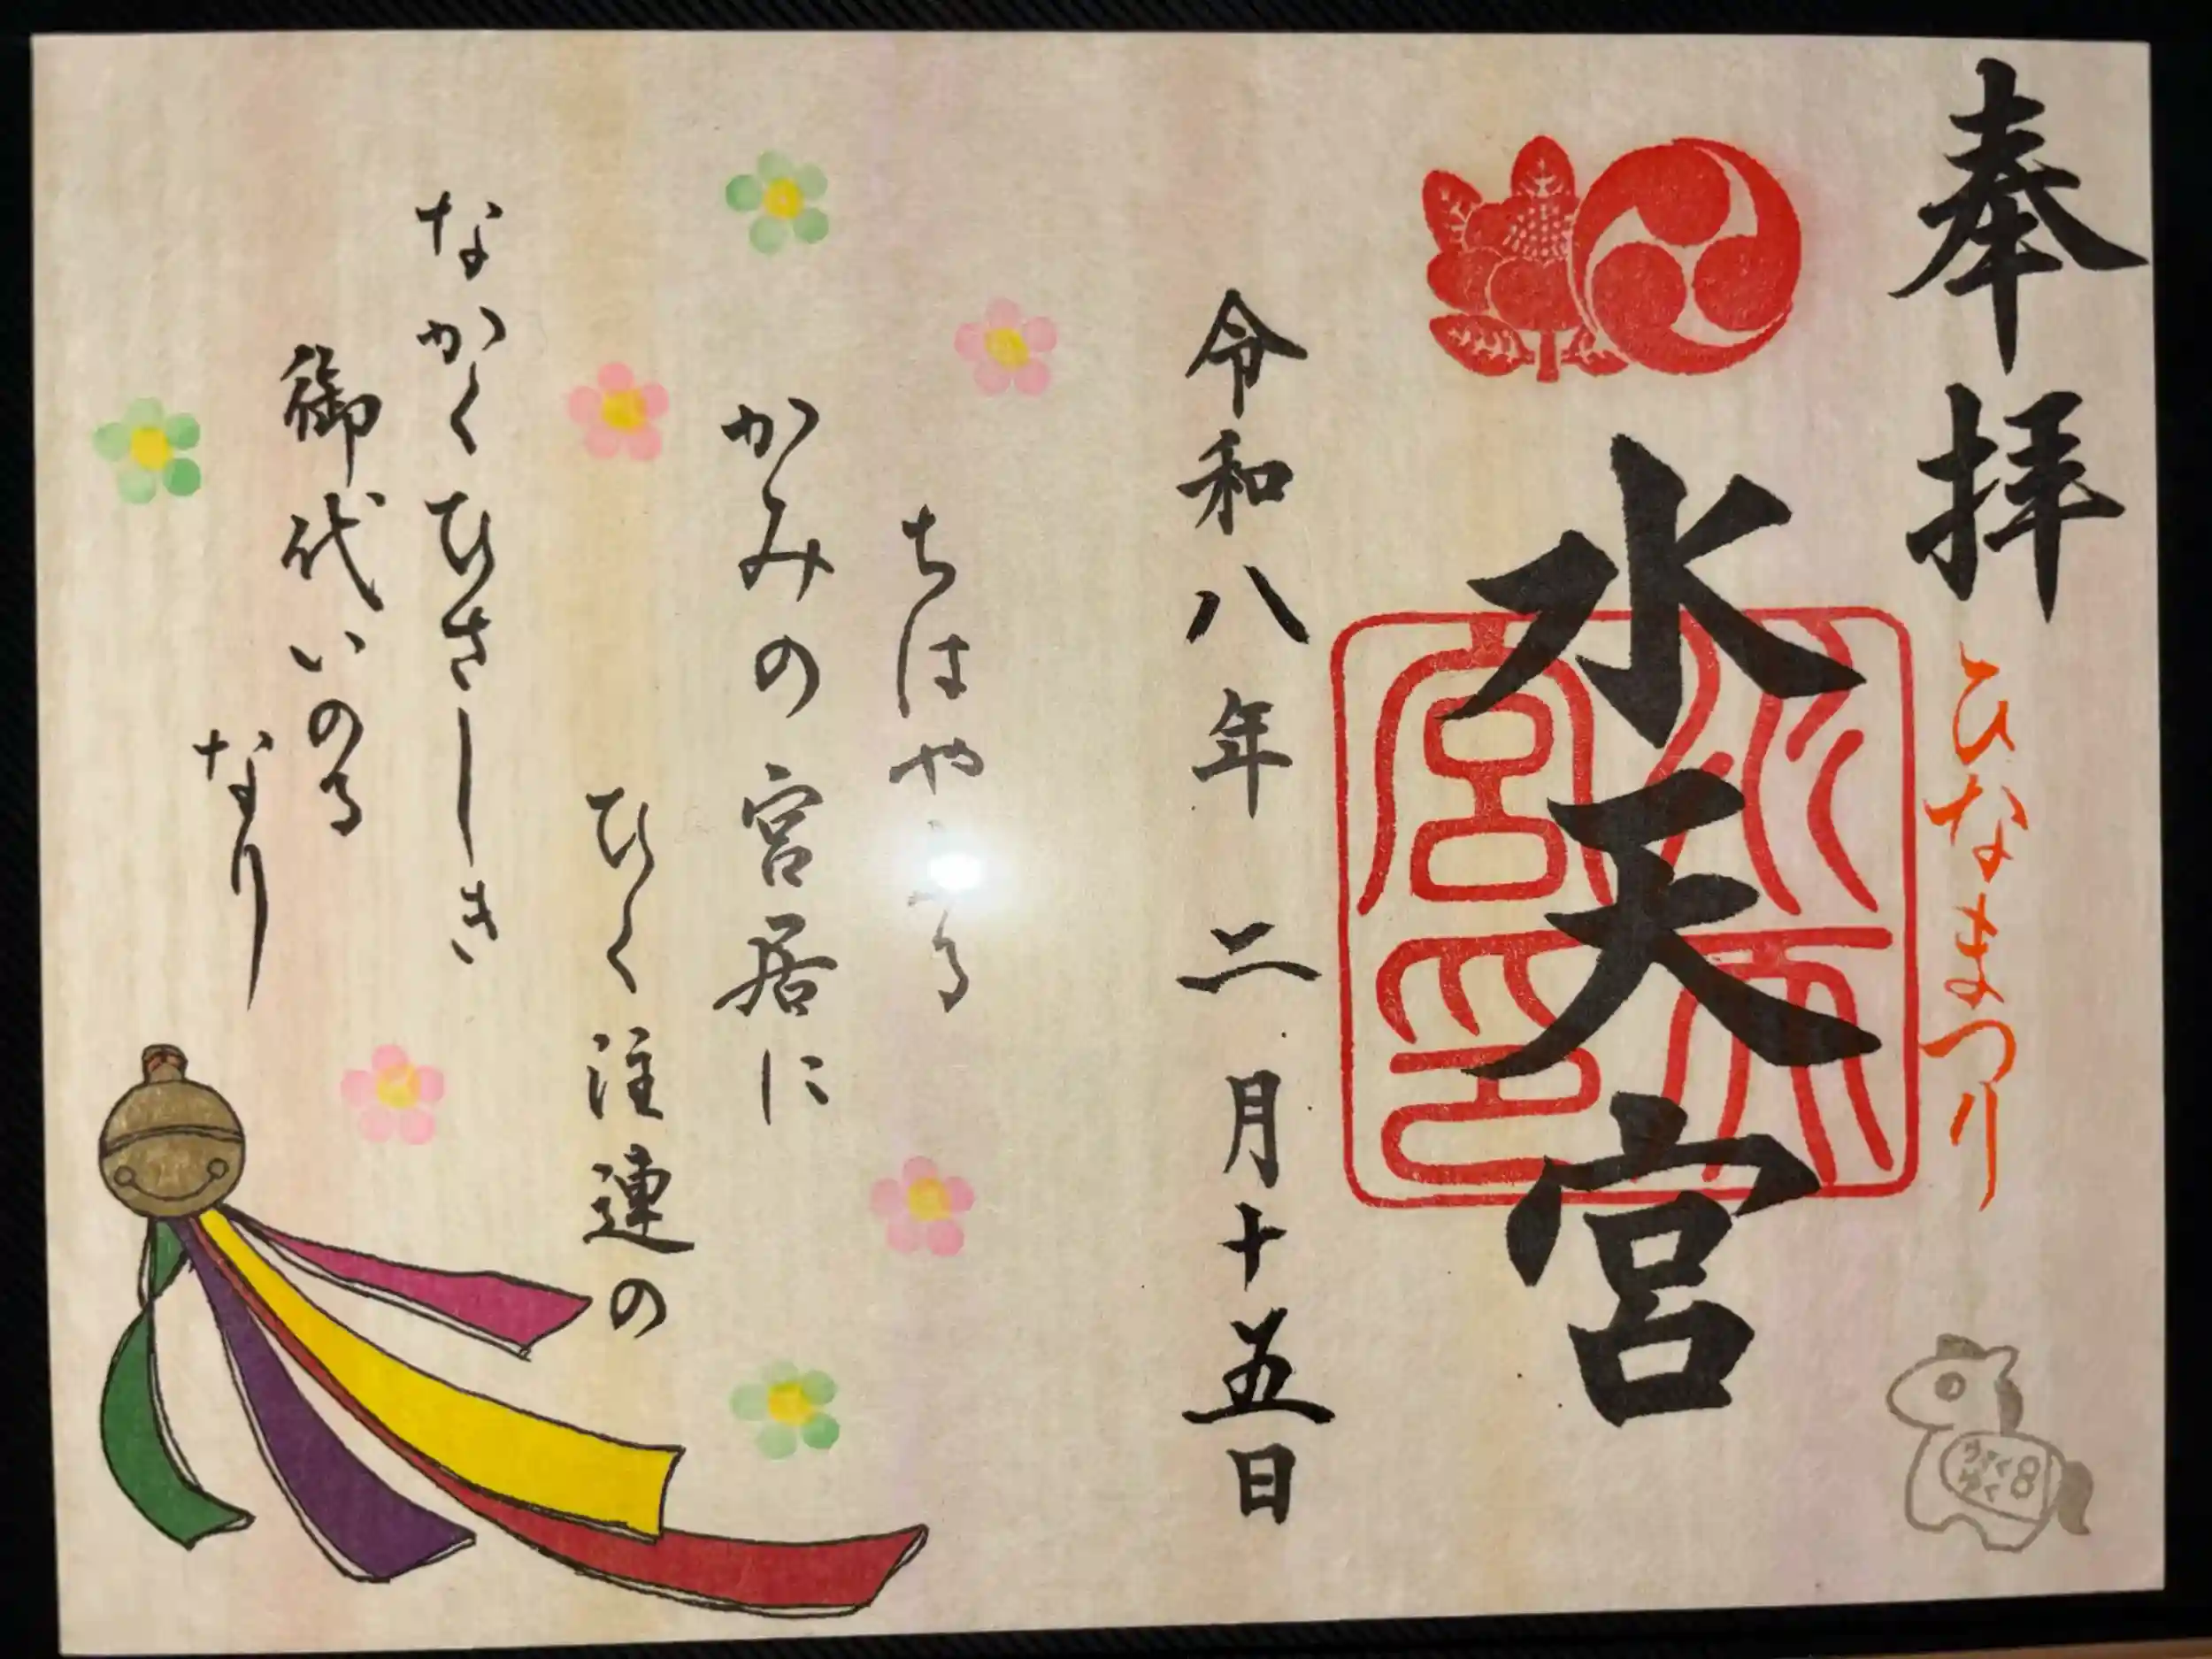 奉拝
ひなまつり
水天宮
水天宮印
令和八年二月十五日
ちはやふる
かみの宮居に
ひく注連の
なかくひさしき
御代いのる
なり
8